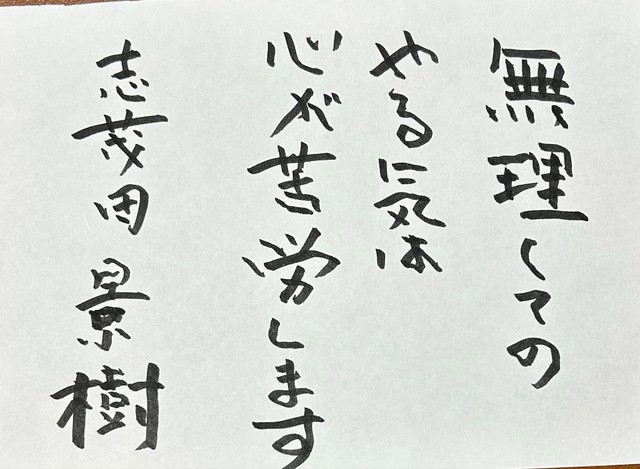 無理しての
やる気は
心が苦労します
志茂田景樹